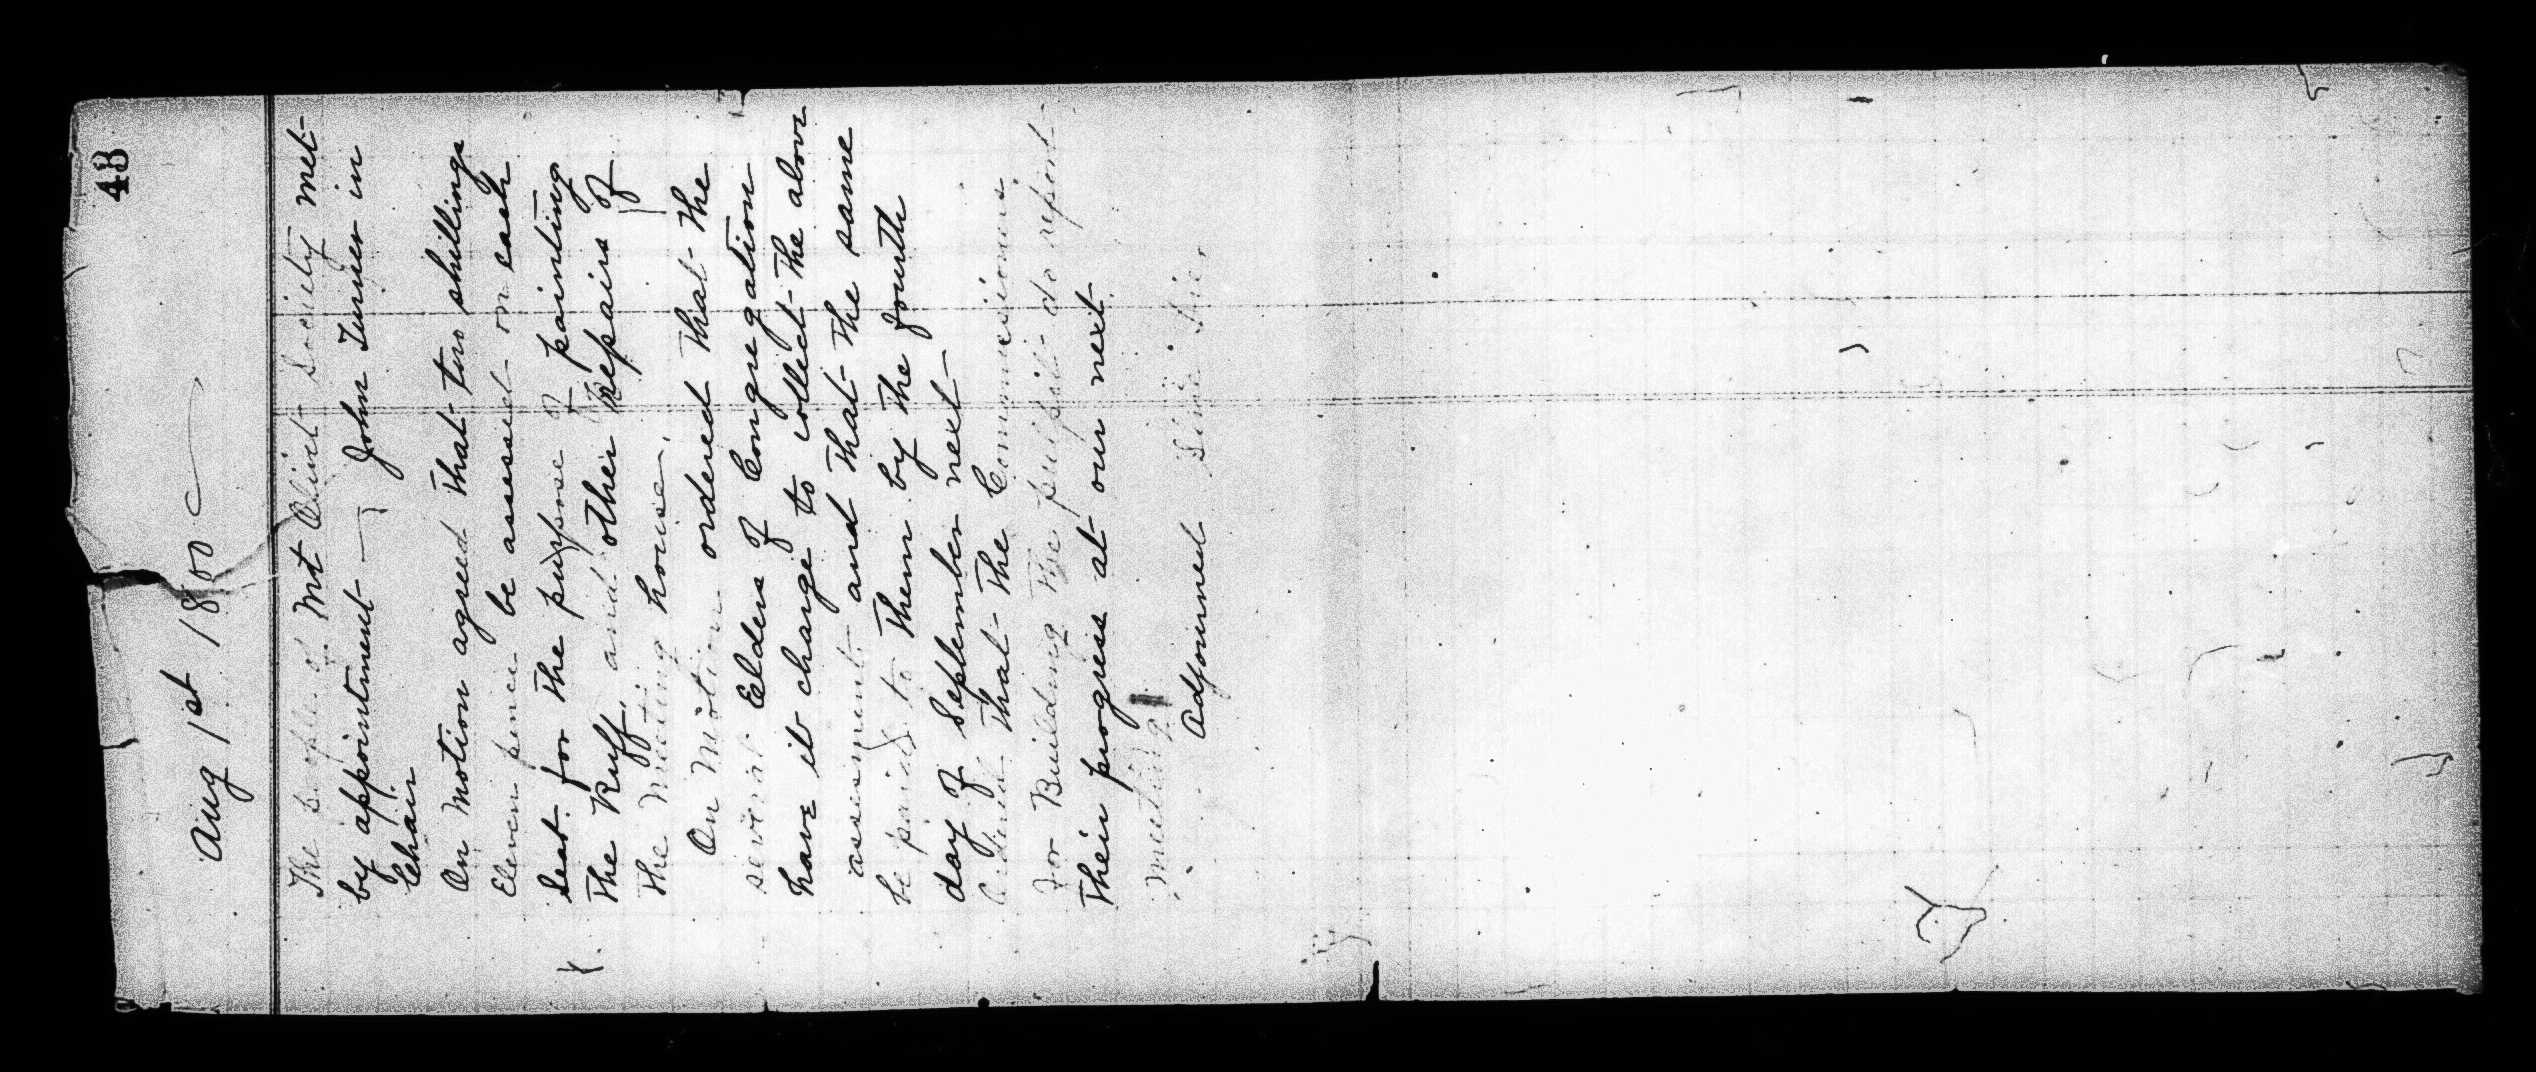 43
Aug 1st 1800
The people of Mt Olivet Society met
by appointment — John Turner in
Chair
On Motion agreed that two shillings
Eleven pence be assessed on each
Seat for the purpose of painting
The Ruff, and other repairs of
the Meeting house.
On Motion ordered that the
several Elders of Congregation
have it charge to collect the above
assesment and that the same
be paid to them by the fourth
day of September next
Ordered that the Commissioners
for Building the pulpit do report
their progress at our next
meeting.
Adjourned Sine Die.